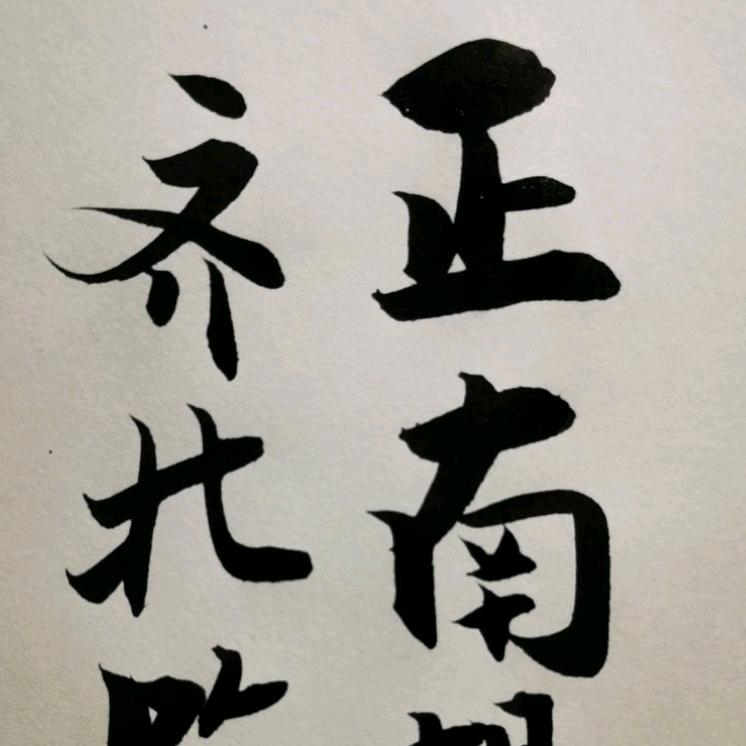 正南
齐北